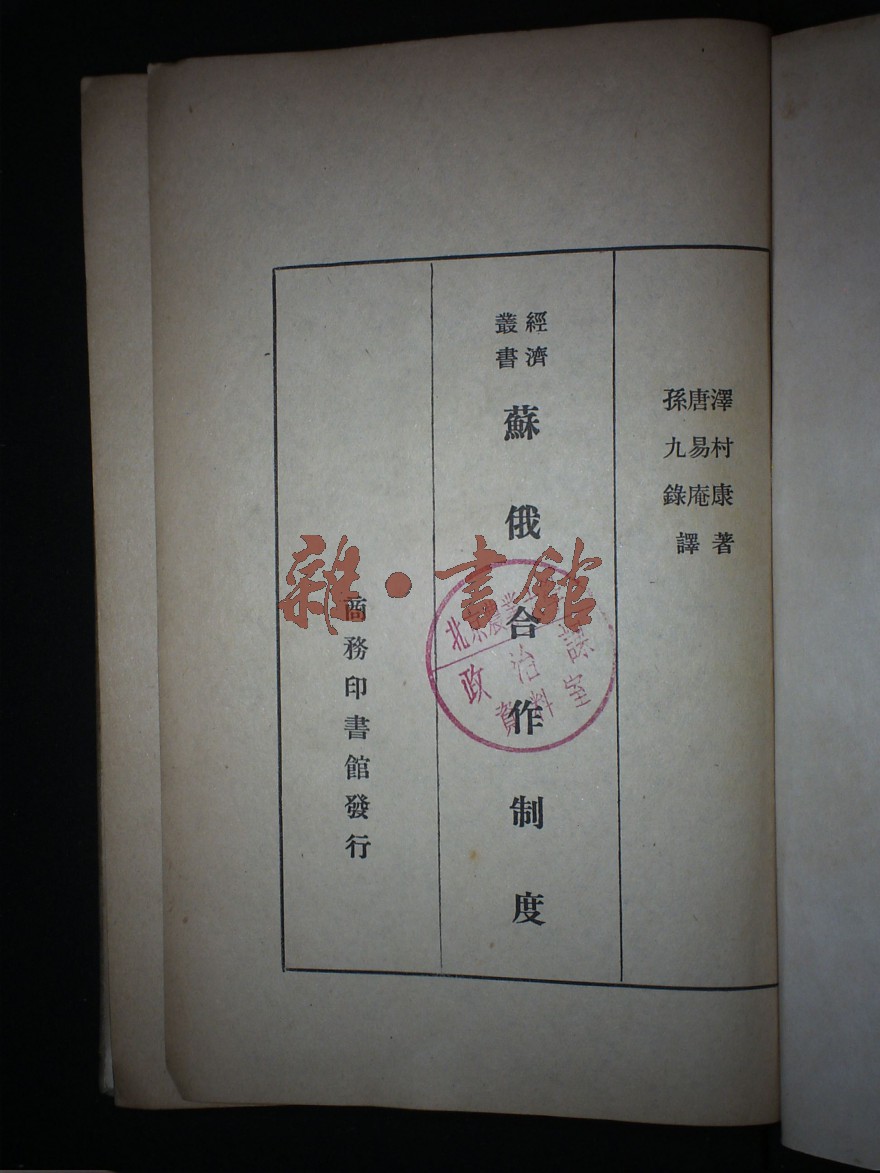 澤村康著
唐易庵
孫九錄
譯
經濟
叢書
蘇俄合作制度
商務印書館發行
雜·書館
北京農業
政治課
資料室